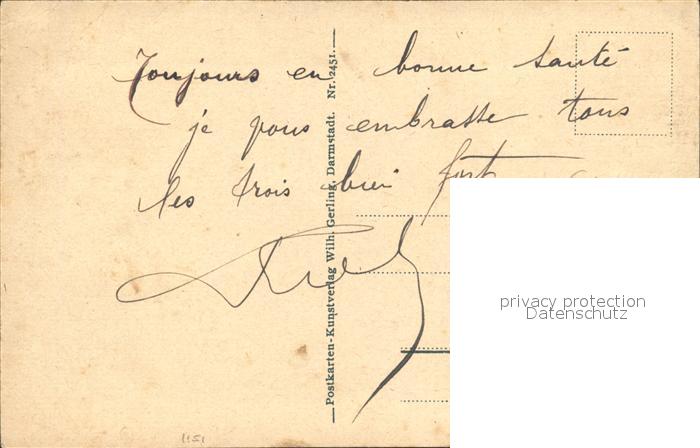 Toujours en bonne santé
je vous embrasse tous
les trois bien fort
Postkarten-Kunstverlag Wilh. Gerling, Darmstadt. Nr. 2451.
privacy protection
Datenschutz
1151